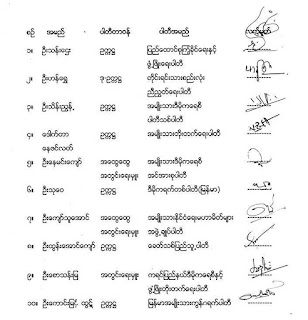 စဉ် အမည် ပါတီတာဝန် ပါတီအမည် လက်မှတ်
၁။ ဦးသန်းဌေး ဥက္ကဋ္ဌ ပြည်ထောင်စုကြံ့ခိုင်ရေးနှင့်
ဖွံ့ဖြိုးရေးပါတီ
၂။ ဦးဟန်ရွှေ ဒု-ဥက္ကဋ္ဌ တိုင်းရင်းသားစည်းလုံး
ညီညွတ်ရေးပါတီ
၃။ ဦးသိန်းညွန့် ဥက္ကဋ္ဌ အမျိုးသားဒီမိုကရေစီ
ပါတီသစ်ပါတီ
၄။ ဒေါက်တာ ဥက္ကဋ္ဌ အမျိုးသားတိုးတက်ရေးပါတီ
နေဇင်လတ်
၅။ ဦးနေမင်းကျော် အထွေထွေ အမျိုးသားဒီမိုကရေစီ
အတွင်းရေးမှူး အင်အားစုပါတီ
၆။ ဦးသုဝေ ဥက္ကဋ္ဌ ဒီမိုကရက်တစ်ပါတီ(မြန်မာ)
၇။ ဦးကျော်သူအောင် အထွေထွေ အမျိုးသားနိုင်ငံရေးမဟာမိတ်များ
အတွင်းရေးမှူး အဖွဲ့ချုပ်ပါတီ
၈။ ဦးထွန်းအောင်ကျော် ဥက္ကဋ္ဌ ခေတ်သစ်ပြည်သူ့ပါတီ
၉။ ဦးစောသန်းမြ အတွင်းရေးမှူး ကရင်ပြည်နယ်ဒီမိုကရေစီနှင့်
ဖွံ့ဖြိုးတိုးတက်ရေးပါတီ
၁၀။ ဦးကောင်းမြင့်ထွဋ် ဥက္ကဋ္ဌ မြန်မာအမျိုးသားကွန်ဂရက်ပါတီ